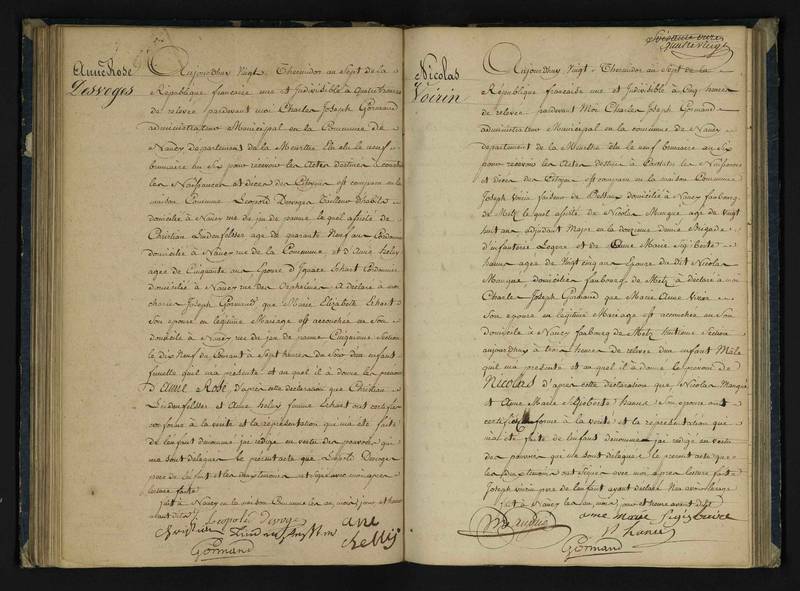 Anne Rose
Desvoges
Aujourdhuy vingt Thermidor an Sept de la
République francaise une et Indivisible à quatre heures
de relevée pardevant moi Charles Joseph Gormand
administrateur Municipal en la Commune de
Nancy departement de la Meurthe Elu le neuf
brumaire an Six pour recevoir les Actes destinés à
les Naissances et décès des Citoyens est comparu en la
maison Commune Leopold Desvoges Tailleur d'habits
domicilié à Nancy rue du jeu de paume le quel assisté de
Christian Lindenfelsser age de quarante Neuf ans Cordonnier
domicilié à Nancy rue de la Commune, et d'Anne hely
agée de Cinquante ans Epouse d'Ignace Echart Cordonnier
domiciliée à Nancy rue des Orphelins A declaré à moi
charles Joseph Gormand que Marie Elizabeth Echart
Son epouse en legitime Mariage est accouchée en Son
domicile à Nancy rue du jeu de paume Cinquieme Section
le dix Neuf du Courant à Sept heures du Soir d'un enfant
femelle quil ma présenté et au quel il à donné les prenoms
d'Anne Rose d'après cette déclaration que Christian
Lindenfelsser et Anne heley femme Echart ont certifiée
conforme à la vérité et la représentation qui m'a été faite
de l'enfant denommé j'ai rédigé en vertu des pouvoirs qui
me sont delegués le présent acte que Leopold Desvoges
père de l'enfant et les deux témoins ont signé avec moi après
lecture faite
fait à Nancy en la maison Commune les an, mois, jour et heure
avant dits
Leopold Devoge
ane
helly
Gormand
Soixante onze
quatre vingt
Nicolas
Voirin
Aujourdhuy vingt Thermidor an Sept de la
République francaise une et Indivisible à Cinq heures
de relevée pardevant Moi Charles Joseph Gormand
administrateur Municipal en la commune de Nancy
departement de la Meurthe élu le neuf brumaire an Six
pour recevoir les Actes destinés à les Naissances
et décès des Citoyens est comparu en la maison Commune
Joseph Voirin faiseur de domicilié à Nancy faubourg
de Metz le quel assisté de Nicolas Mangue age de vingt
huit ans adjudant Major en la demie Brigade
d'infanterie Legere et de Anne Marie Sigisberte
hanus agée de vingt cinq ans Epouse du dit Nicolas
Mangue domiciliés faubourg de Metz à déclaré à moi
Charle Joseph Gormand que Marie Anne
Son epouse en legitime Mariage est accouchée en Son
domicile à Nancy faubourg de Metz huitieme Section
aujourdhuy à trois heures de relevée d'un enfant Mâle
quil ma présenté et au quel il à donné le prénom de
Nicolas d'après cette déclaration que Nicolas Mangue
et Anne Marie Sigisberte hanus Son epouse ont
certifiée conforme à la vérité et la représentation que
m'a été faite de l'enfant denommé j'ai rédigé en vertu
des pouvoirs qui me sont delegués le présent acte que
les deux témoins ont Signés avec moi après lecture faite
Joseph Voirin père de l'enfant ayant declaré
fait à Nancy les an, mois, jour et heure avant dits
anne Marie Sigisbeire
hanus
Gormand